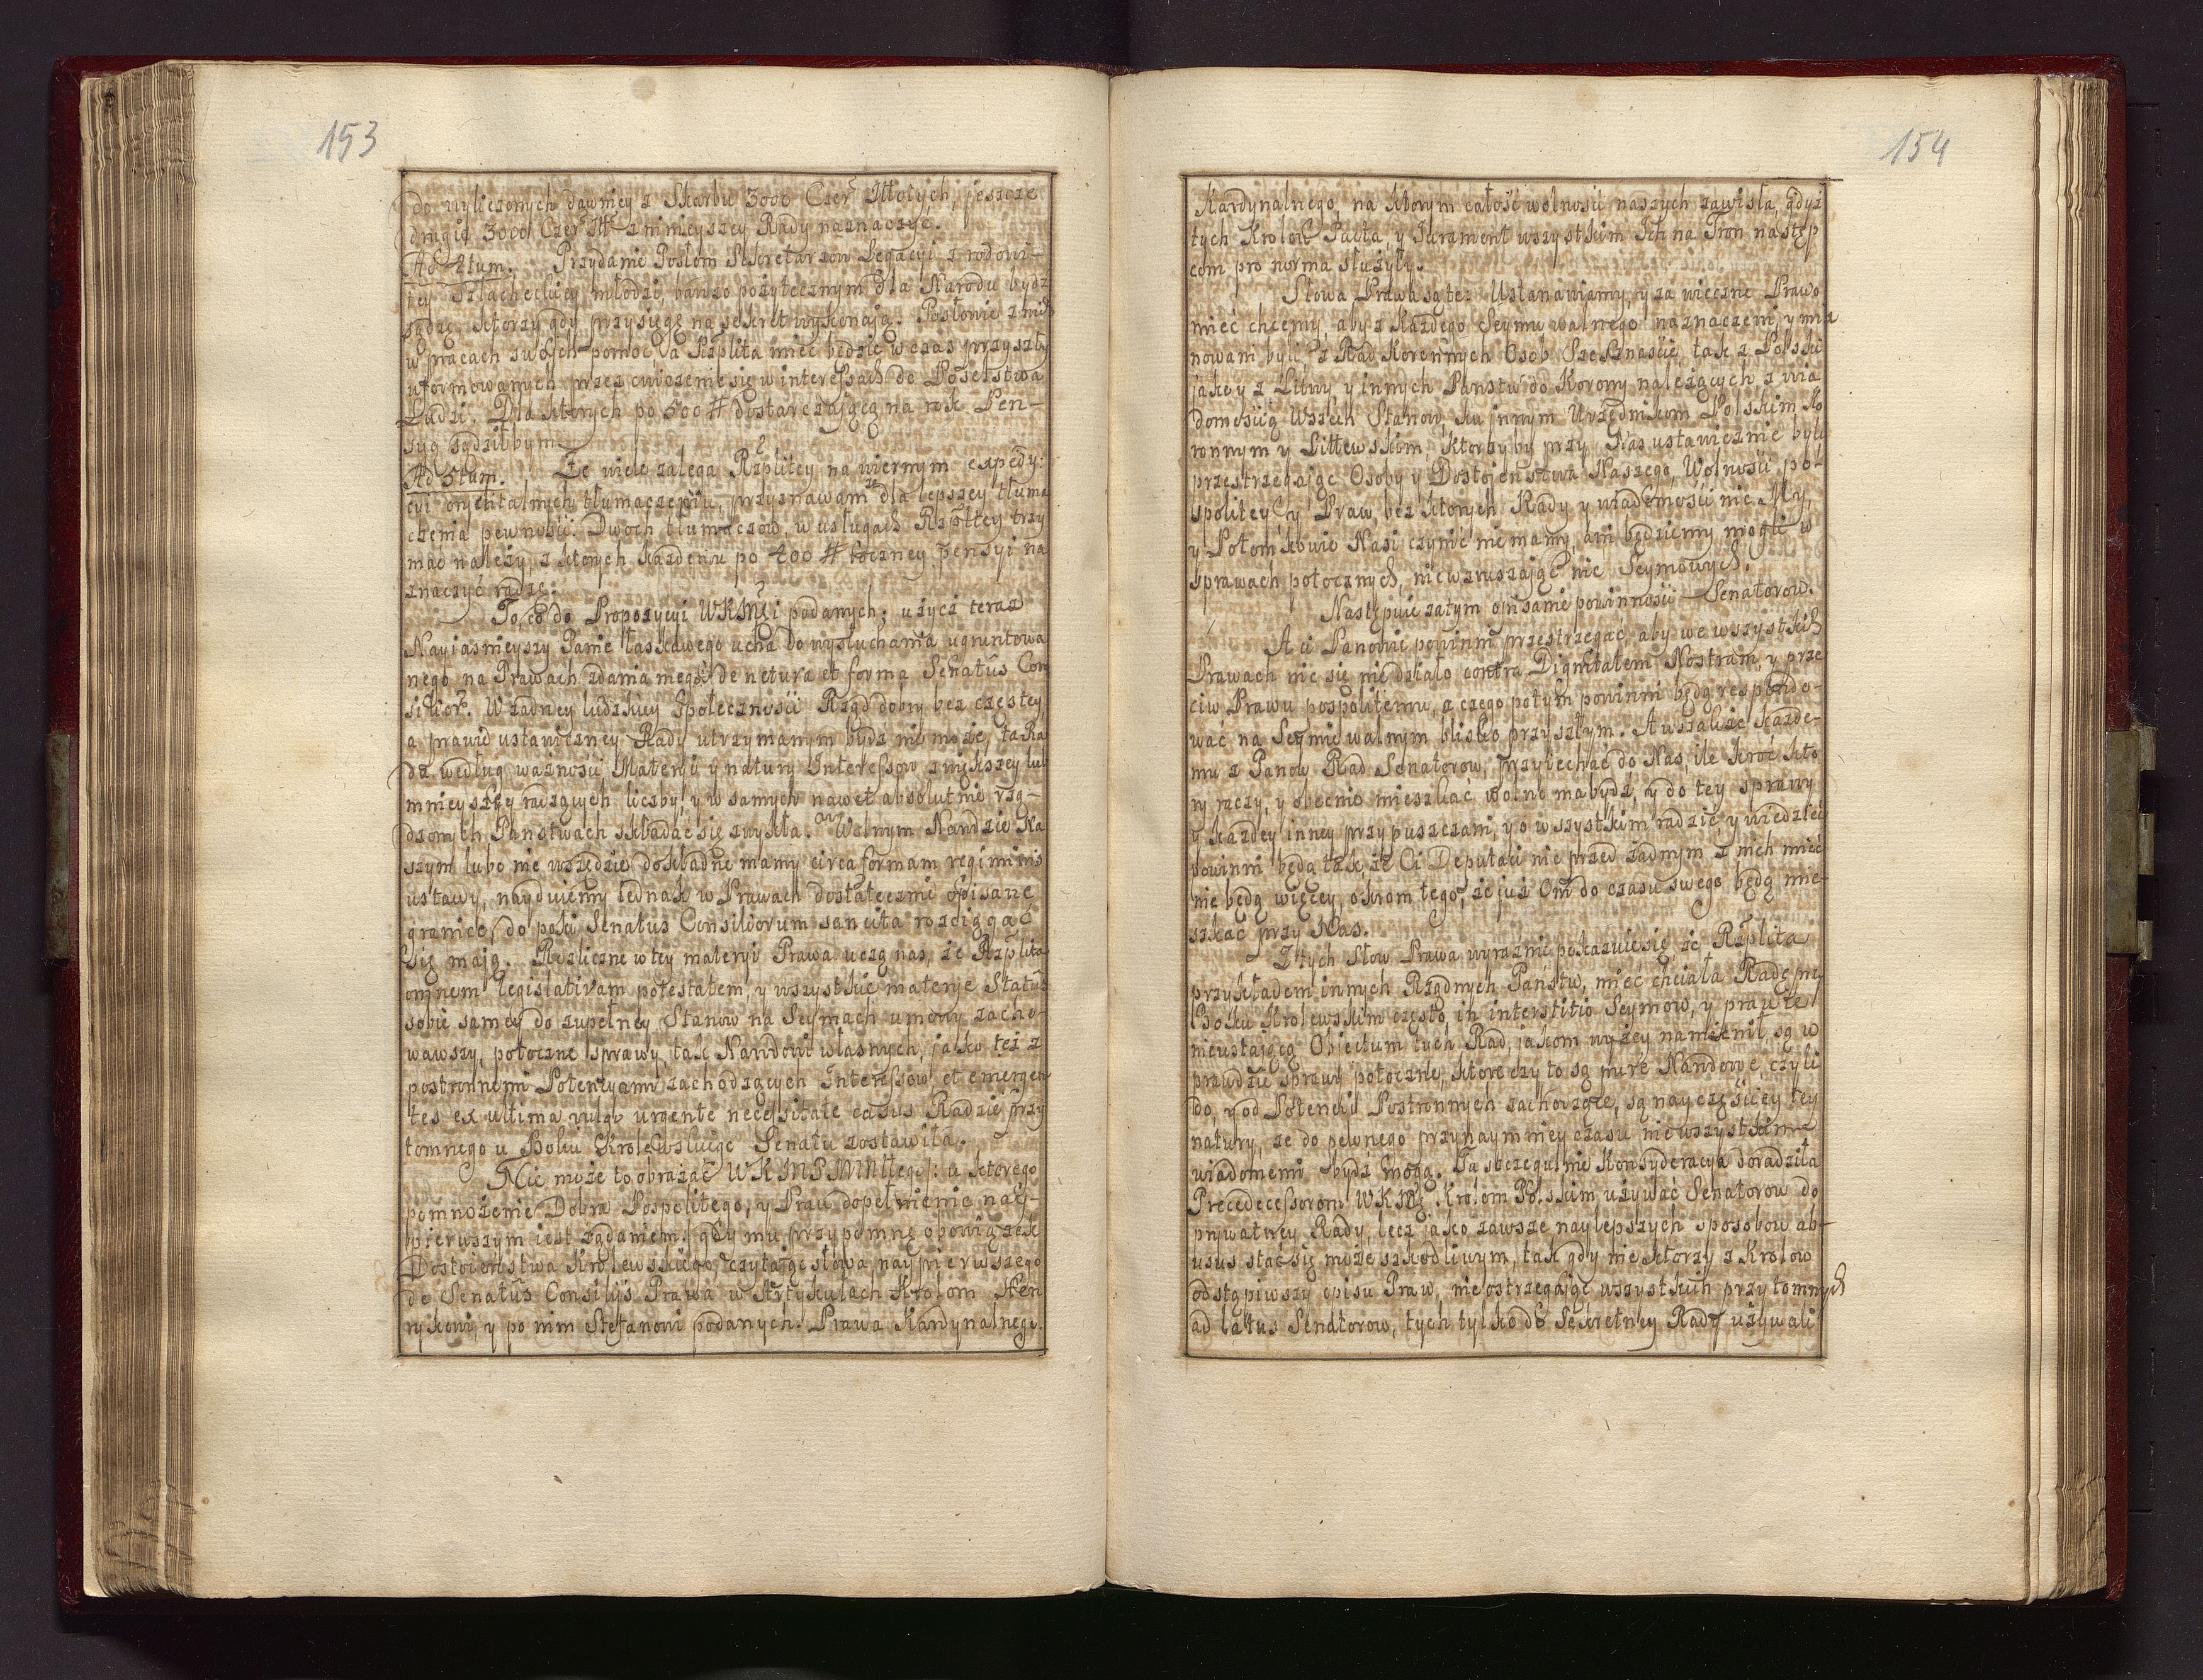 153
do wyliczonych dawniey z Skarbu 3000 Czer Złotych, jeszcze
drugie 3000 Czer Zł z mnieyszey Rady naznaczyć.
Ad 4tum. Przydanie Posłom Sekretarzow Legacyi z rodowi-
tey Szlacheckiey młodzi, barzo pożytecznym dla Narodu bydź
sądzę, ktorzy gdy przysięgę na sekret wykonają. Posłowie z nich
w pracach swoich pomoc, a Rzplita mieć będzie w czas przyszły
uformowanych przez cwiczenie się w interessach do Poselstwa
Ludzi. Dla ktorych po 500 # dostarczającą na rok Pen-
syą sądziłbym.
Ad 5tum. Że wiele zalega Rzplitey na wiernym expedy-
cyi oryentalnych tłumaczeniu, przyznawam że dla lepszey tłuma
czenia pewności. Dwoch tłumaczow, w usługach Rzpltey trzy
mać należy, z ktorych każdemu po 400 # roczney pensyi na
znaczyć radzę.
To, co do Propozycyi WKMci podanych; użycz teraz
Nayiasnieyszy Panie łaskawego ucha do wysłuchania ugruntowa
nego na Prawach zdania mego, de natura et forma Senatus Con
silior. W żadney ludzkiey Społeczności Rząd dobry bez częstey,
a prawie ustawiczney Rady utrzymanym bydz nie może, ta Ra
da według ważności Materyi y natury Interessow z większey lub
mnieyszey radzących liczby, y w samych nawet absolutnie rzą-
dzonych Państwach składać się zwykła. W Wolnym Narodzie Na
szym lubo nie wszędzie dokładne mamy circa formam regiminis
ustawy, nayduiemy iednak w Prawach dostatecznie opisane
granice, do poki Senatus Consiliorum sancita rozciągać
się mają. Rozliczne w tey materyi Prawa uczą nas, że Rzplita
omnem legislativam potestatem, y wszystkie materye Statûs
sobie samey do zupełney Stanow na Seymach umowy zacho-
wawszy, potoczne sprawy tak Narodowi własnych, jako też z
postronnemi Potencyami zachodzących Interessow, et emergen
tes ex ultima vulgo urgente necessitate casus Radzie przy
tomnego u Boku Krolewskiego Senatu zostawiła.
Nie może to obrażać WKMPMMłłego: u ktorego
pomnożenie Dobra Pospolitego, y Praw dopełnienie nay-
pierwszym iest żądaniem, gdy mu przypomnę obowiązek
Dostoieństwa Krolewskiego, czytaiąc słowa naypierwszego
de Senatûs Consilijs Prawa w Artykułach Krolom Hen
rykowi, y po nim Stefanowi podanych. Prawa Kardynalnego.
154
Kardynalnego, na ktorym całość wolności naszych zawisła, gdyż
tych Krolow Pacta, y Jurament wszystkim Ich na Tron następ
com pro norma służyły.
Słowa Prawa są te: Ustanawiamy, y za wieczne Prawo
mieć chcemy, aby z Każdego Seymu walnego naznaczeni, y mia
nowani byli z Rad Koronnych Osob Szesznaście, tak z Polski
jako y z Litwy y innych Państw do Korony należących, z wia
domością Wszech Stanow, ku innym Urzędnikom Polskim Ko
ronnym y Litewskim, ktorzyby przy Nas ustawicznie byli
przestrzegając Osoby y Dostojeństwa Naszego, Wolności po-
spolitey, y Praw, bez ktorych Rady y wiadomości nic My,
y Potomkowie Nasi czynić nie mamy, ani będziemy mogli w
sprawach potocznych, niewzruszając nic Seymowych.
Następuie zatym opisanie powinności Senatorow.
A ci Panowie powinni przestrzegać, aby we wszystkich
Prawach nic się nie działo contra Dignitatem Nostram, y prze
ciw Prawu pospolitemu, z czego potym powinni będą respondo-
wać na Seymie walnym blisko przyszłym. A wszakże każde-
mu z Panow Rad Senatorow, przyiechać do Nas, ile kroć kto
ry raczy, y obecnie mieszkać wolno ma bydź, y do tey sprawy
y każdey inney przypuszczani, y o wszystkim radzić, y wiedzieć
powinni będą tak, że Ci Deputaci nic przed żadnym z nich mieć
nie będą więcey, okrom tego, że już Oni do czasu swego będą mie-
szkać przy Nas.
Z tych Słow Prawa wyraźnie pokazuie się, że Rzplita
przykładem innych Rządnych Państw, mieć chciała Radę przy
Boku Krolewskim często, in interstitio Seymow, y prawie
nieustającą. Objectum tych Rad, jakom wyżey namienił, są w
prawdzie sprawy potoczne, ktore czy to są mere Narodowe, czyli
do, y od Potencyi Postronnych zachodzące, są nayczęściey tey
natury, że do pewnego przynaymniey czasu nie wszystkim
wiadomemi bydź mogą. Ta szczegulnie Konsyderacya doradziła
Precedecessorom WKMci Krolom Polskim, używać Senatorow do
prywatney Rady, lecz jako zawsze naylepszych sposobow ab-
usus stać się może szkodliwym, tak gdy niektorzy z Krolow
odstąpiwszy opisu Praw, nie ostrzegając wszystkich przytomnych
ad latus Senatorow, tych tylko do Sekretney Rady używali